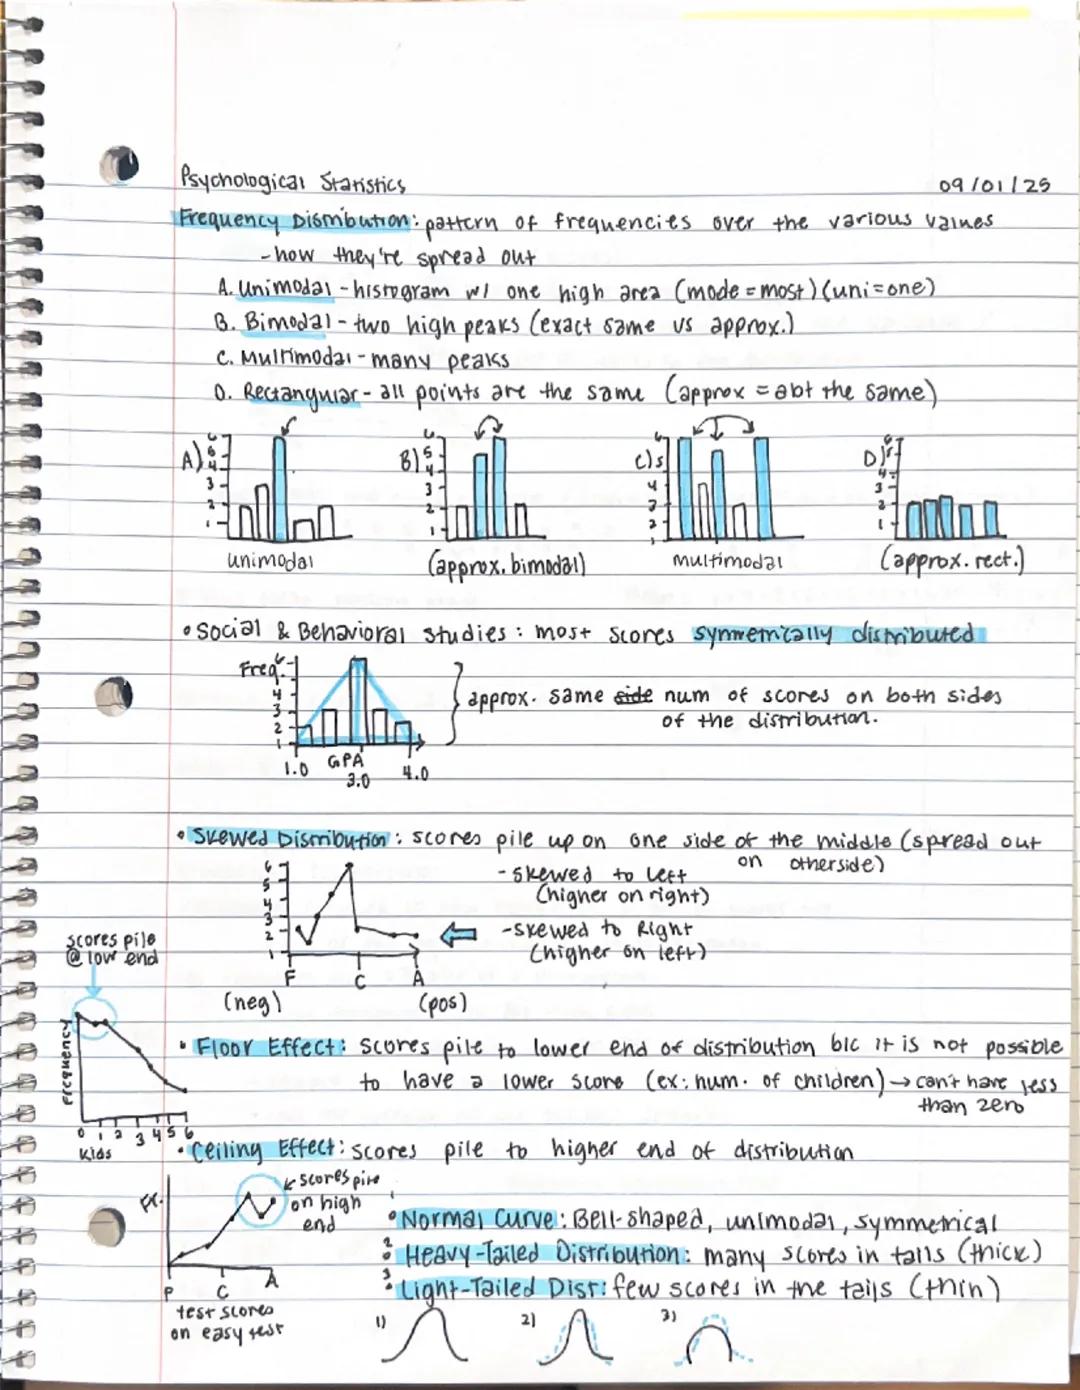 Psychological Statistics 09/01/25
Frequency Distribution: pattern of frequencies over the various values
- how they're spread out
A. Unimodal - histogram w/ one high area (mode = most) (uni = one)
B. Bimodal - two high peaks (exact same vs approx.)
C. Multimodal - many peaks
D. Rectangular - all points are the same (approx = abt the same)
A) 6 5 4 3 2 1
B) 6 5 4 3 2 1
C) 6 5 4 3 2 1
D) 6 5 4 3 2 1
unimodal (approx. bimodal) multimodal (approx. rect.)
• Social & Behavioral studies: most scores symmetrically distributed
Freq. 6 5 4 3 2 1
approx. same side num of scores on both sides
of the distribution.
1.0 GPA 3.0 4.0
• Skewed Distribution: scores pile up on one side of the middle (spread out
on otherside)
6 5 4 3 2 1
- Skewed to left
(higher on right)
- Skewed to Right
(higher on left)
F C A
(neg) (pos)
scores pile
@ low end
Frequency
0 1 2 3 4 5 6
Kids
• Floor Effect: scores pile to lower end of distribution b/c it is not possible
to have a lower score (ex: num. of children) → can't have less
than zero
• Ceiling Effect: scores pile to higher end of distribution
scores pile
on high
end
Fr.
F C A
test scores
on easy test
1 • Normal Curve: Bell-shaped, unimodal, symmetrical
2 • Heavy-Tailed Distribution: many scores in tails (thick)
3 • Light-Tailed Distr: few scores in the tails (thin)
1) 2) 3)